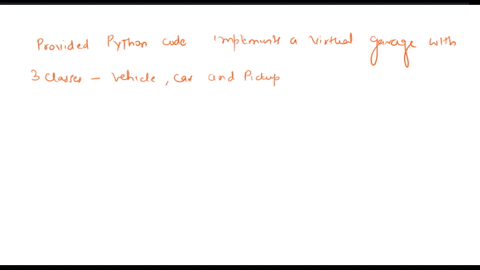 Provided Python code implements a virtual garage with
3 classes - Vehicle, Car and Pickup